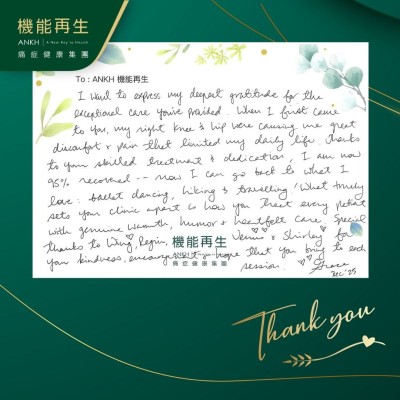 機能再生
ANKH | A New Key to Health
痛症健康集團
To : ANKH 機能再生
I want to express my deepest gratitude for the
exceptional care you've provided. When I first came
to you, my right knee & hip were causing me great
discomfort & pain that limited my daily life. Thanks
to your skilled treatment & dedication, I am now
95% recovered -- now I can go back to what I
love: ballet dancing, hiking & travelling! What truly
sets your clinic apart is how you treat every patient
with genuine warmth, humor & heartfelt care. Special
thanks to Wing, Regin, & Shirley for
your kindness, encouragement & hope that you bring to each
session. Grace
Dec '25
機能再生
痛症健康集團
Thank you